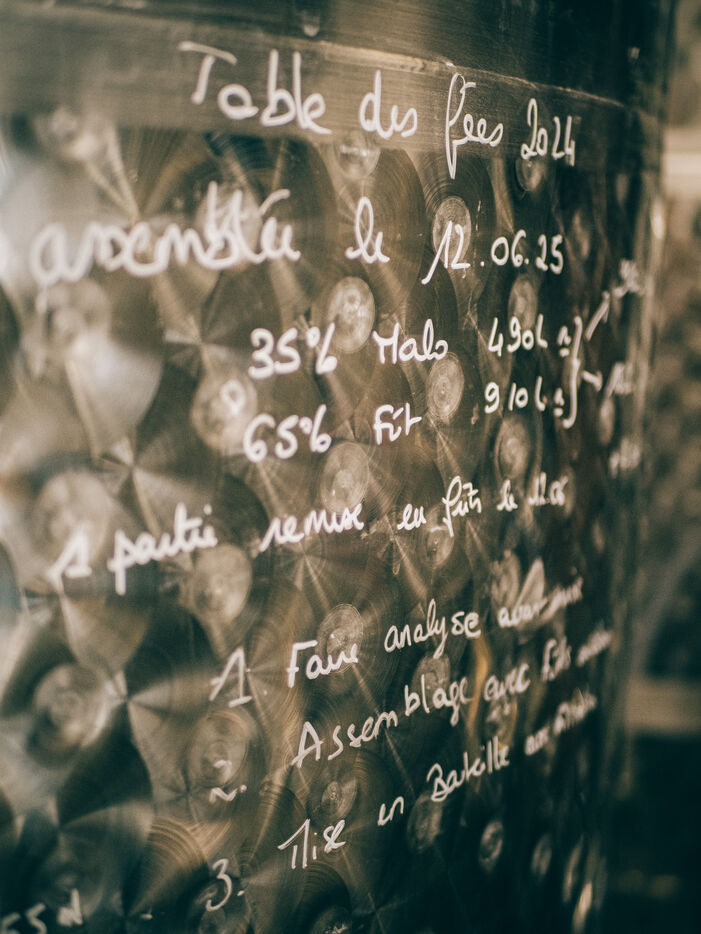 Table des fées 2024
assemblée le 12.06.25
35% Malo 490L
65% Fût 910L
1 partie remise en fûts le 12.06
1. Faire analyse avant
2. Assemblage avec fûts
3. Mise en Bouteille